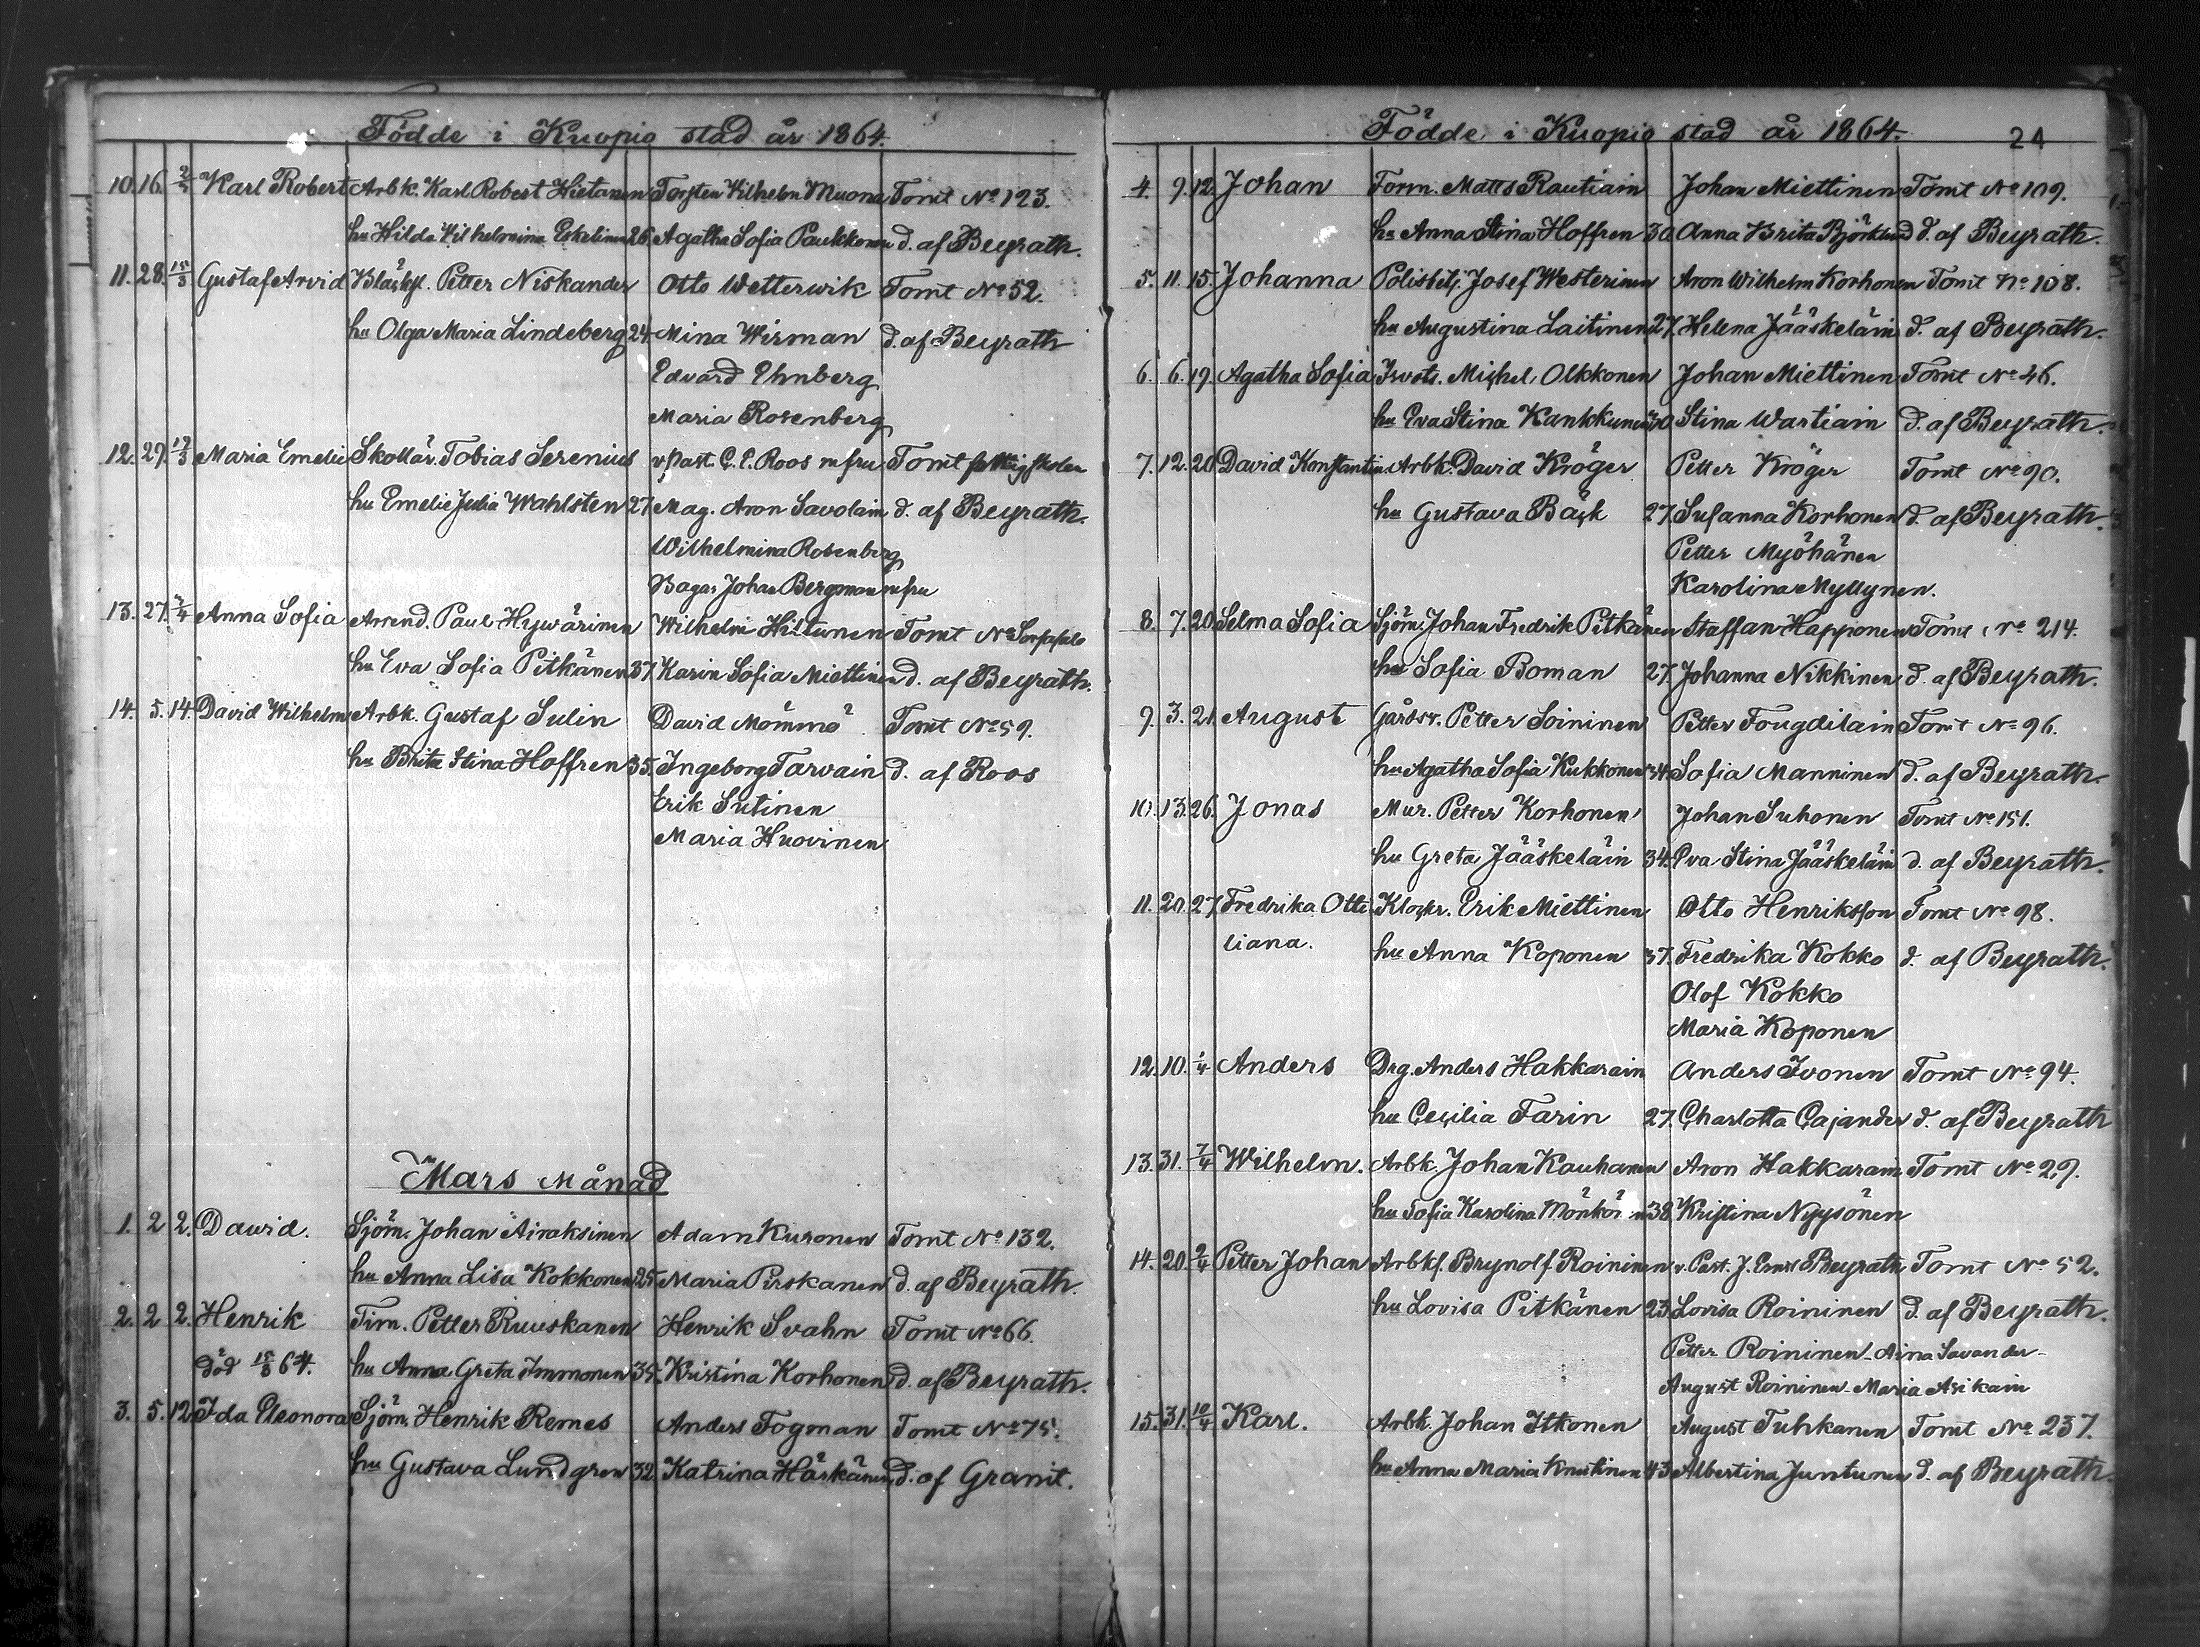 Födde i Kuopio stad år 1864.
10. 16. 2/3 Karl Robert Arbk. Karl Robert Hietanen Torsten Wilhelm Muona Tomt No 123.
hu Hilda Wilhelmina Eskelinen 26 Agatha Sofia Paukkonen d. af Beyrath.
11. 28. 15/3 Gustaf Arvid Petter Niskander Otto Wetterwik Tomt No 52.
hu Olga Maria Lindeberg 24 Mina Wirman d. af Beyrath
Edvard Ehnberg
Maria Rosenberg
12. 29. 17/3 Maria Emelie Skollär. Tobias Serenius v Past. C. E. Roos m fru Tomt fattigskolan
hu Emelie Julia Wahlsten 27. Mag. Aron Savolain d. af Beyrath.
Wilhelmina Rosenberg
Bagar Johan Bergman m fru
13. 27. 2/4 Anna Sofia Arrend. Paul Hywärinen Wilhelm Hiltunen Tomt No
hu Eva Sofia Pitkänen 37 Karin Sofia Miettinen d. af Beyrath.
14. 5. 14. David Wilhelm Arbk. Gustaf Sulin David Mömmö Tomt No 59.
hu Brita Stina Hoffren 35. Ingeborg Tarvain d. af Roos
Erik Sutinen
Maria Huovinen
Mars Månad
1. 2 2. David. Sjöm. Johan Airaksinen Adam Kuronen Tomt No 132.
hu Anna Lisa Kokkonen 25 Maria Pirskanen d. af Beyrath.
2. 2 2. Henrik Tim. Petter Ruuskanen Henrik Svahn Tomt No 66.
död 15/8 64. hu Anna Greta Immonen 35. Kristina Korhonen d. af Beyrath.
3. 5. 12 Ida Eleonora Sjöm. Henrik Remes Anders Fogman Tomt No 75.
hu Gustava Lundgren 32. Katrina Härkänen d. af Granit.
Födde i Kuopio stad år 1864. 24
4. 9. 12. Johan Form. Matts Rautiain Johan Miettinen Tomt No 109.
hu Anna Stina Hoffren 30 Anna Brita Björklund d. af Beyrath.
5. 11. 15. Johanna Polisbetj. Josef Westerinen Aron Wilhelm Korhonen Tomt No 108.
hu Augustina Laitinen 27. Helena Jääskeläin d. af Beyrath.
6. 6. 19. Agatha Sofia Michel Olkkonen Johan Miettinen Tomt No 46.
hu Eva Stina Kankkunen 30 Stina Wartiain d. af Beyrath.
7. 12. 20 David Konstantin Arbk. David Kröger Petter Kröger Tomt No 90.
hu Gustava Bäck 27. Susanna Korhonen d. af Beyrath.
Petter Myöhänen
Karolina Myllynen.
8. 7. 20 Selma Sofia Sjöm. Johan Fredrik Pitkänen Staffan Happonen Tomt No 214.
hu Sofia Boman 27. Johanna Nikkinen d. af Beyrath.
9. 3. 21. August Gårdsr. Petter Soininen Petter Fougdilain Tomt No 96.
hu Agatha Sofia Kukkonen 34. Sofia Manninen d. af Beyrath.
10. 13. 26. Jonas Mur. Petter Korhonen Johan Suhonen Tomt No 151.
hu Greta Jääskeläin 34. Eva Stina Jääskeläin d. af Beyrath.
11. 20. 27. Fredrika Otti Klockr. Erik Miettinen Otto Henriksson Tomt No 98.
liana. hu Anna Koponen 37. Fredrika Kokko d. af Beyrath.
Olof Kokko
Maria Koponen
12. 10. 1/4 Anders Drg. Anders Hakkarain Anders Ivonen Tomt No 94.
hu Cecilia Farin 27. Charlotta Cajander d. af Beyrath
13. 31. 7/4 Wilhelm. Arbk. Johan Kauhanen Aron Hakkarain Tomt No 29.
hu Sofia Karolina Mönkönen 38. Kristina Nyysönen
14. 20. 2/4 Petter Johan Arbkf. Brynolf Roininen v. Past. J. Ernst Beyrath Tomt No 52.
hu Lovisa Pitkänen 23. Lovisa Roininen d. af Beyrath.
Petter Roininen - Aina Savander -
August Roininen - Maria Asikain
15. 31. 10/4 Karl. Arbk. Johan Itkonen August Tuhkanen Tomt No 237.
hu Anna Maria Knutinen 43 Albertina Juntunen d. af Beyrath.